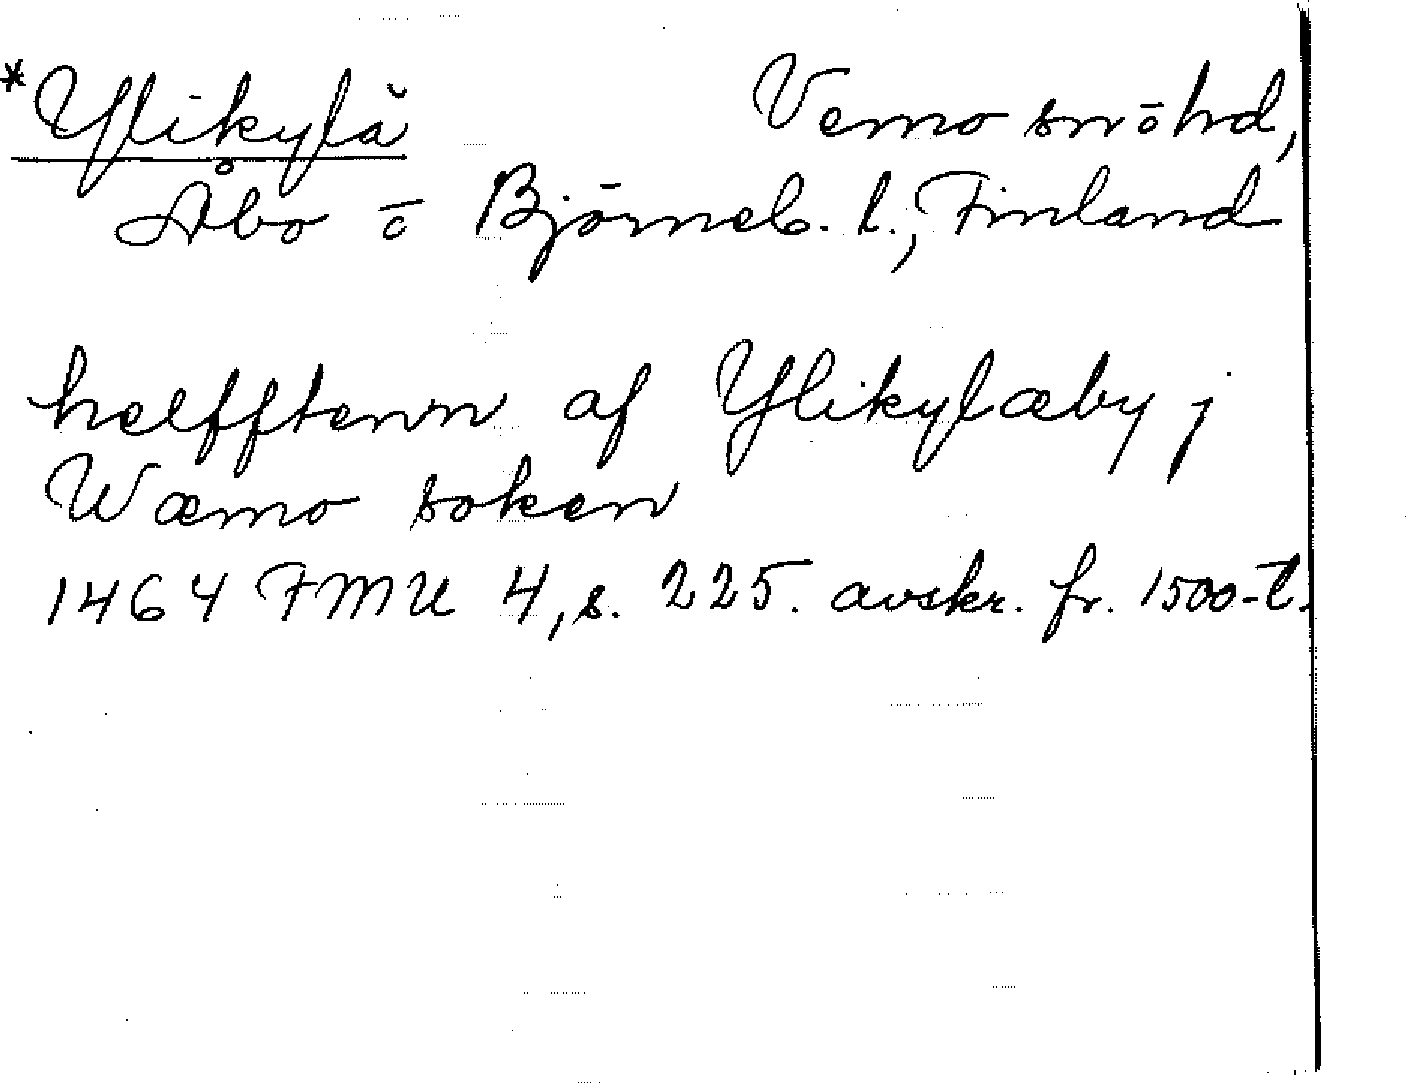 *Ylikylä Vemo sn ö hd,
Åbo ö Björneb. l., Finland
helfftenn af Ylikylæby j
Wæmo soken
1464 FMU 4, s. 225. avskr. fr. 1500-t.